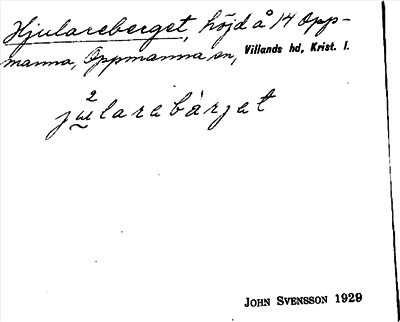 Hjulareberget, höjd å 14 Opp-
manna, Oppmanna sn, Villands hd, Krist. l.
2
jularebärjet
JOHN SVENSSON 1929